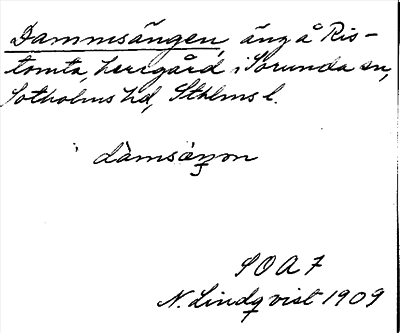 Dammsängen, äng å Ris-
tomta, herrgård, i Sorunda sn,
Sotholms hd, Sthlms l.
dàmsáŋon
S O A 7
N. Lindqvist 1909